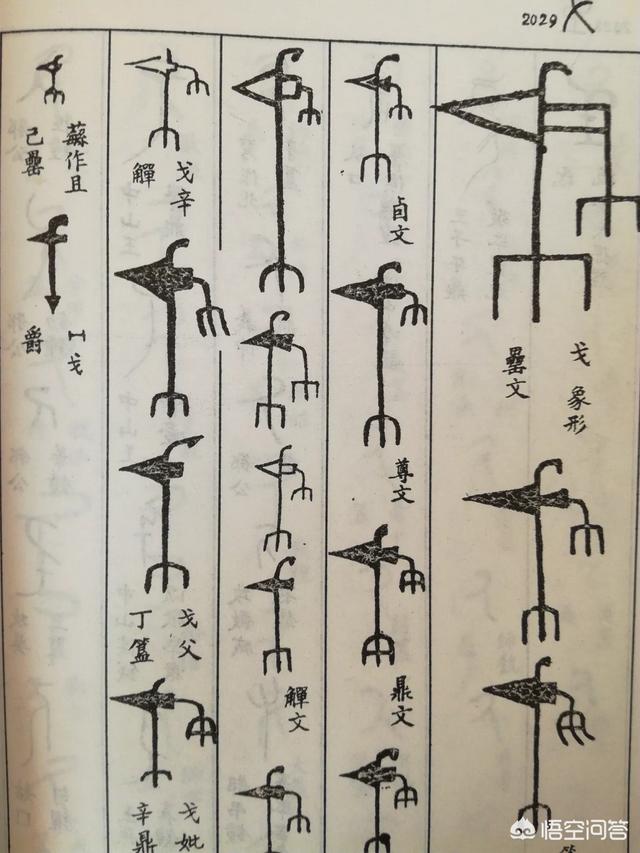 2029
戈 象形
罍文
卣文
尊文
鼎文
觶文
戈辛
觶
戈父
丁簋
戈妣
辛鼎
作且
己罍
戈
爵
悟空问答